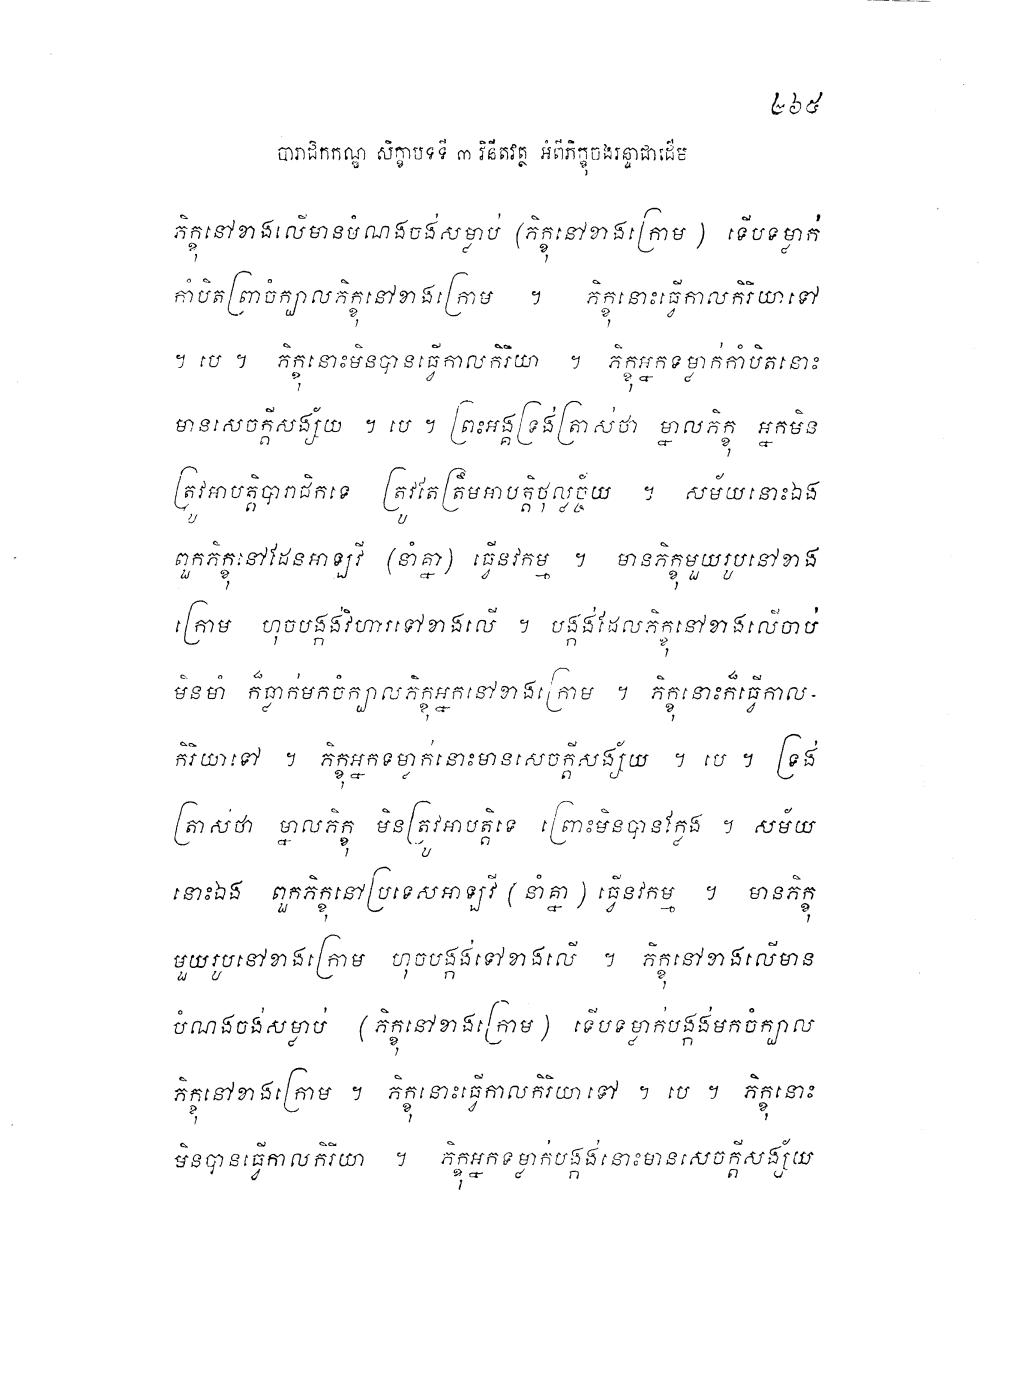 ៤៦៥
បារាជិកកណ្ឌ សិក្ខាបទទី ៣ វិនីតវត្ថុ អំពីភិក្ខុចងរន្ទាជាដើម
ភិក្ខុនៅខាងលើមានបំណងចង់សម្លាប់ (ភិក្ខុនៅខាងក្រោម) ទើបទម្លាក់
កាំបិតព្រាចំក្បាលភិក្ខុនៅខាងក្រោម ។ ភិក្ខុនោះធ្វើកាលកិរិយាទៅ
។ បេ ។ ភិក្ខុនោះមិនបានធ្វើកាលកិរិយា ។ ភិក្ខុអ្នកទម្លាក់កាំបិតនោះ
មានសេចក្តីសង្ស័យ ។ បេ ។ ព្រះអង្គទ្រង់ត្រាស់ថា ម្នាលភិក្ខុ អ្នកមិន
ត្រូវអាបត្តិបារាជិកទេ ត្រូវតែត្រឹមអាបត្តិថុល្លច្ច័យ ។ សម័យនោះឯង
ពួកភិក្ខុនៅដែនអាឡវី (នាំគ្នា) ធ្វើនវកម្ម ។ មានភិក្ខុមួយរូបនៅខាង
ក្រោម ហុចបង្កង់វិហារទៅខាងលើ ។ បង្កង់ដែលភិក្ខុនៅខាងលើចាប់
មិនមាំ ក៏ធ្លាក់មកចំក្បាលភិក្ខុអ្នកនៅខាងក្រោម ។ ភិក្ខុនោះក៏ធ្វើកាល-
កិរិយាទៅ ។ ភិក្ខុអ្នកទម្លាក់នោះមានសេចក្តីសង្ស័យ ។ បេ ។ ទ្រង់
ត្រាស់ថា ម្នាលភិក្ខុ មិនត្រូវអាបត្តិទេ ព្រោះមិនបានក្លែង ។ សម័យ
នោះឯង ពួកភិក្ខុនៅប្រទេសអាឡវី (នាំគ្នា) ធ្វើនវកម្ម ។ មានភិក្ខុ
មួយរូបនៅខាងក្រោម ហុចបង្កង់ទៅខាងលើ ។ ភិក្ខុនៅខាងលើមាន
បំណងចង់សម្លាប់ (ភិក្ខុនៅខាងក្រោម) ទើបទម្លាក់បង្កង់មកចំក្បាល
ភិក្ខុនៅខាងក្រោម ។ ភិក្ខុនោះធ្វើកាលកិរិយាទៅ ។ បេ ។ ភិក្ខុនោះ
មិនបានធ្វើកាលកិរិយា ។ ភិក្ខុអ្នកទម្លាក់បង្កង់នោះមានសេចក្តីសង្ស័យ